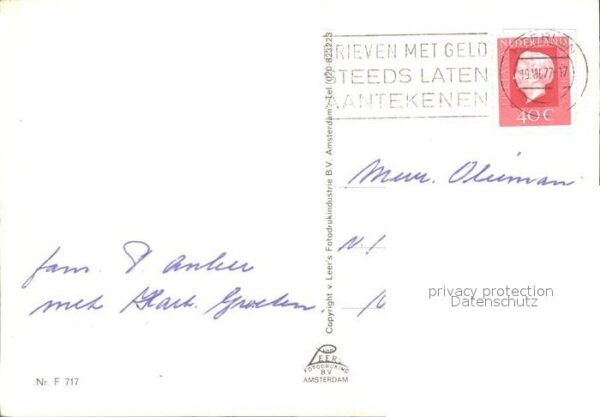 RIEVEN MET GELD
STEEDS LATEN
AANTEKENEN
NEDERLAND
40 C
Copyright v. Leer's Fotodrukindustrie B.V. Amsterdam - Tel. 020-825223
Mevr. Olieman
N.
fam. P. Anker
met Hart. Groeten.
privacy protection
Datenschutz
VAN
LEER
FOTODRUKIND
BV
AMSTERDAM
Nr. F 717